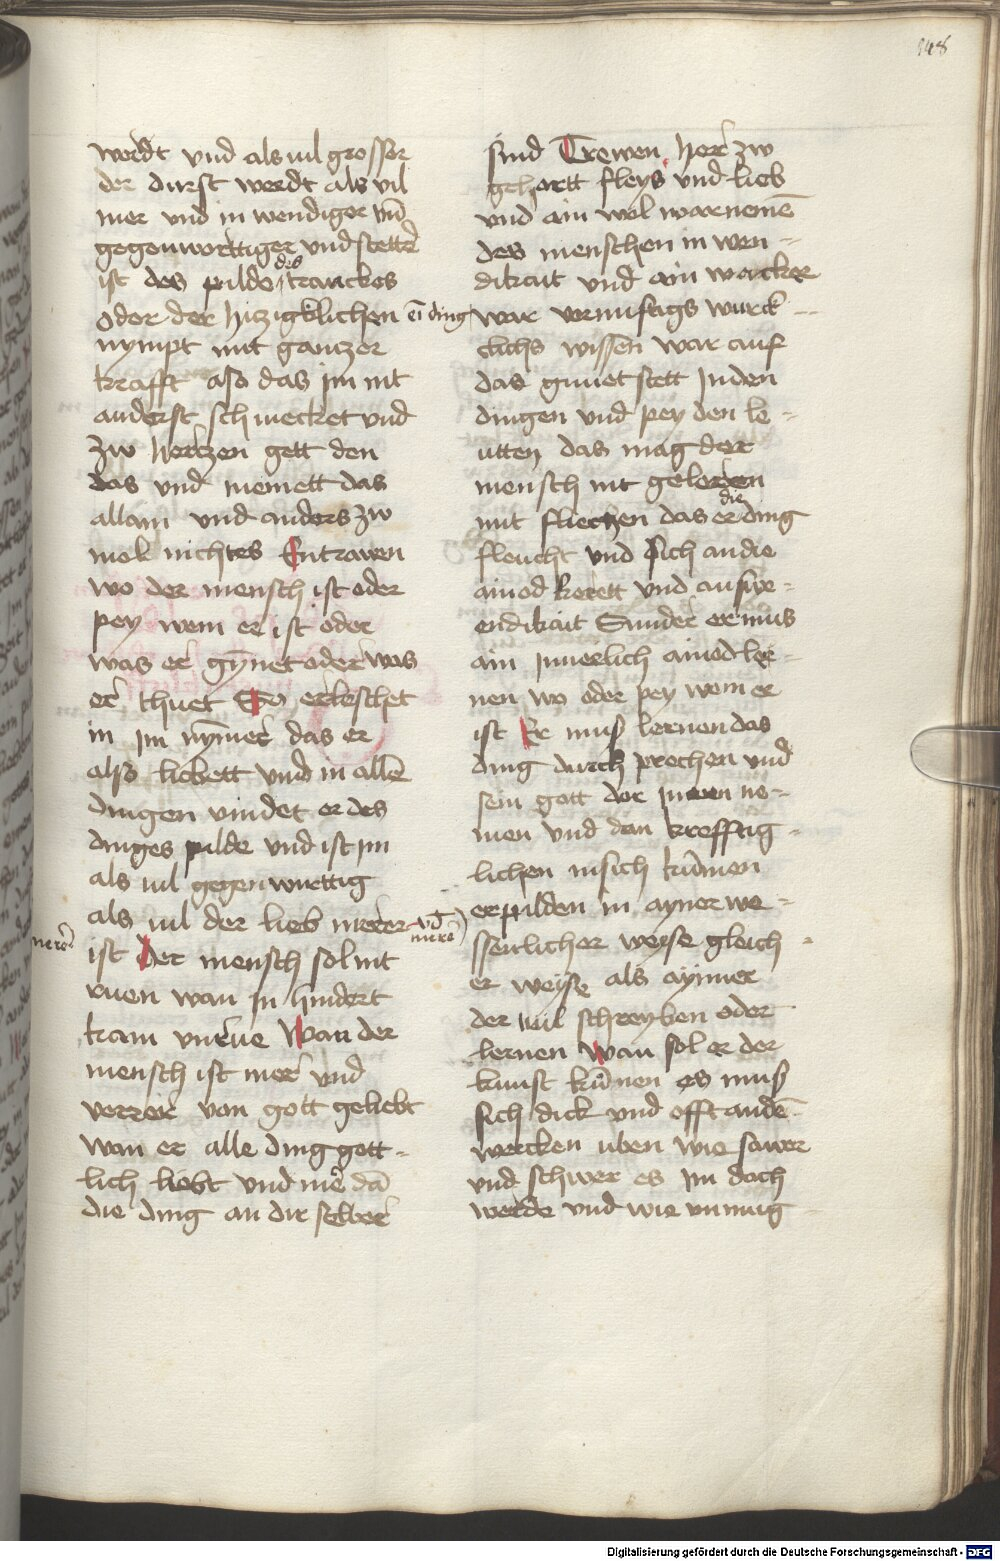 148
werdt vnd als uil grosser
der durst werdt als vil
mer vnd in wendiger vnd̄
gegenworttiger vnd stetter̄
ist des pilde des tranckes
oder der hizigklichen ein ding
nympt mit gantzer
krafft also das im nit
anderst schmecket vnd
zw hertzen gett den
das vnd meinett das
allain vnd anders zw
mol nichtes Entrawen
wo der mensch ist oder
pey wem er ist oder
was er gynnet oder was
er thuet Das erleschet
in im nymer das er
also liebett vnd in allē
dingen vindet er des
dinges pilde vnd ist im
als uil gegenwuettig
als uil der lieb merer vnd
merer
ist Der mensch sol nit
ruen wan in hindert
kain vnrue Wan der
mensch ist mer vnd
verrer von gott geliebt
wan er alle ding gott-
lich liebt vnd mē dā
die ding an dir selber
sind Trewen herr zw
gehortt fleys vnd lieb
vnd ain wol warnemē
des menschen in wen-
dikait vnd ain wacker
war vernuftigs wurck-
clichs wissen war auf
das gmuet stett In den
dingen vnd pey den le-
utten das mag der
mensch nit gelernen
mit fliechen das er die ding
fleucht vnd sich an die
ainod kerett vnd auswe-
endikait Sunder er mus
ain Innerlich ainod ler-
nen wo oder pey wem er
ist Er muß lernen das
ding durch prechen vnd
sein gott dor Innen ne-
men vnd den krefftig-
lichen in sich kunnen
erpilden in ayner we-
ssenlicher weyse gleich-
er weyse als aymer
der wil schreyben oder
lernen Wan sol er der
kunst kunnen es muß
sich dick vnd offt an den
wercken uben wie sawer
vnd schwer es im doch
werde vnd wie vnmug-
Digitalisierung gefördert durch die Deutsche Forschungsgemeinschaft - DFG